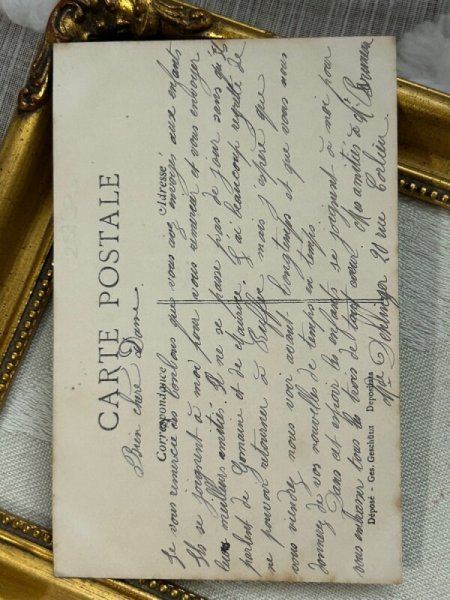 CARTE POSTALE
Correspondance
Adresse
Bien chère Dame.
Je vous remercie des bonbons que vous avez envoyés aux enfants
Ils se joignent à moi pour vous remercier et vous envoyer
leurs meilleures amitiés. Il ne se passe pas de jour sans qu'ils
parlent de Germaine et de Maurice. J'ai beaucoup regretté de
ne pouvoir retourner à mais j'espère que
vous viendrez nous voir avant longtemps et que vous nous
donnerez de vos nouvelles de temps en temps.
Dans cet espoir les enfants se joignent à moi pour
vous embrasser tous les trois de tout cœur. Mes amitiés à Mr
Mme 20 rue
Déposé - Ges. Geschützt Deposited